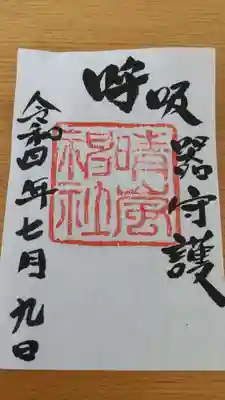 呼吸器守護
晴嵐
神社
令和四年七月九日